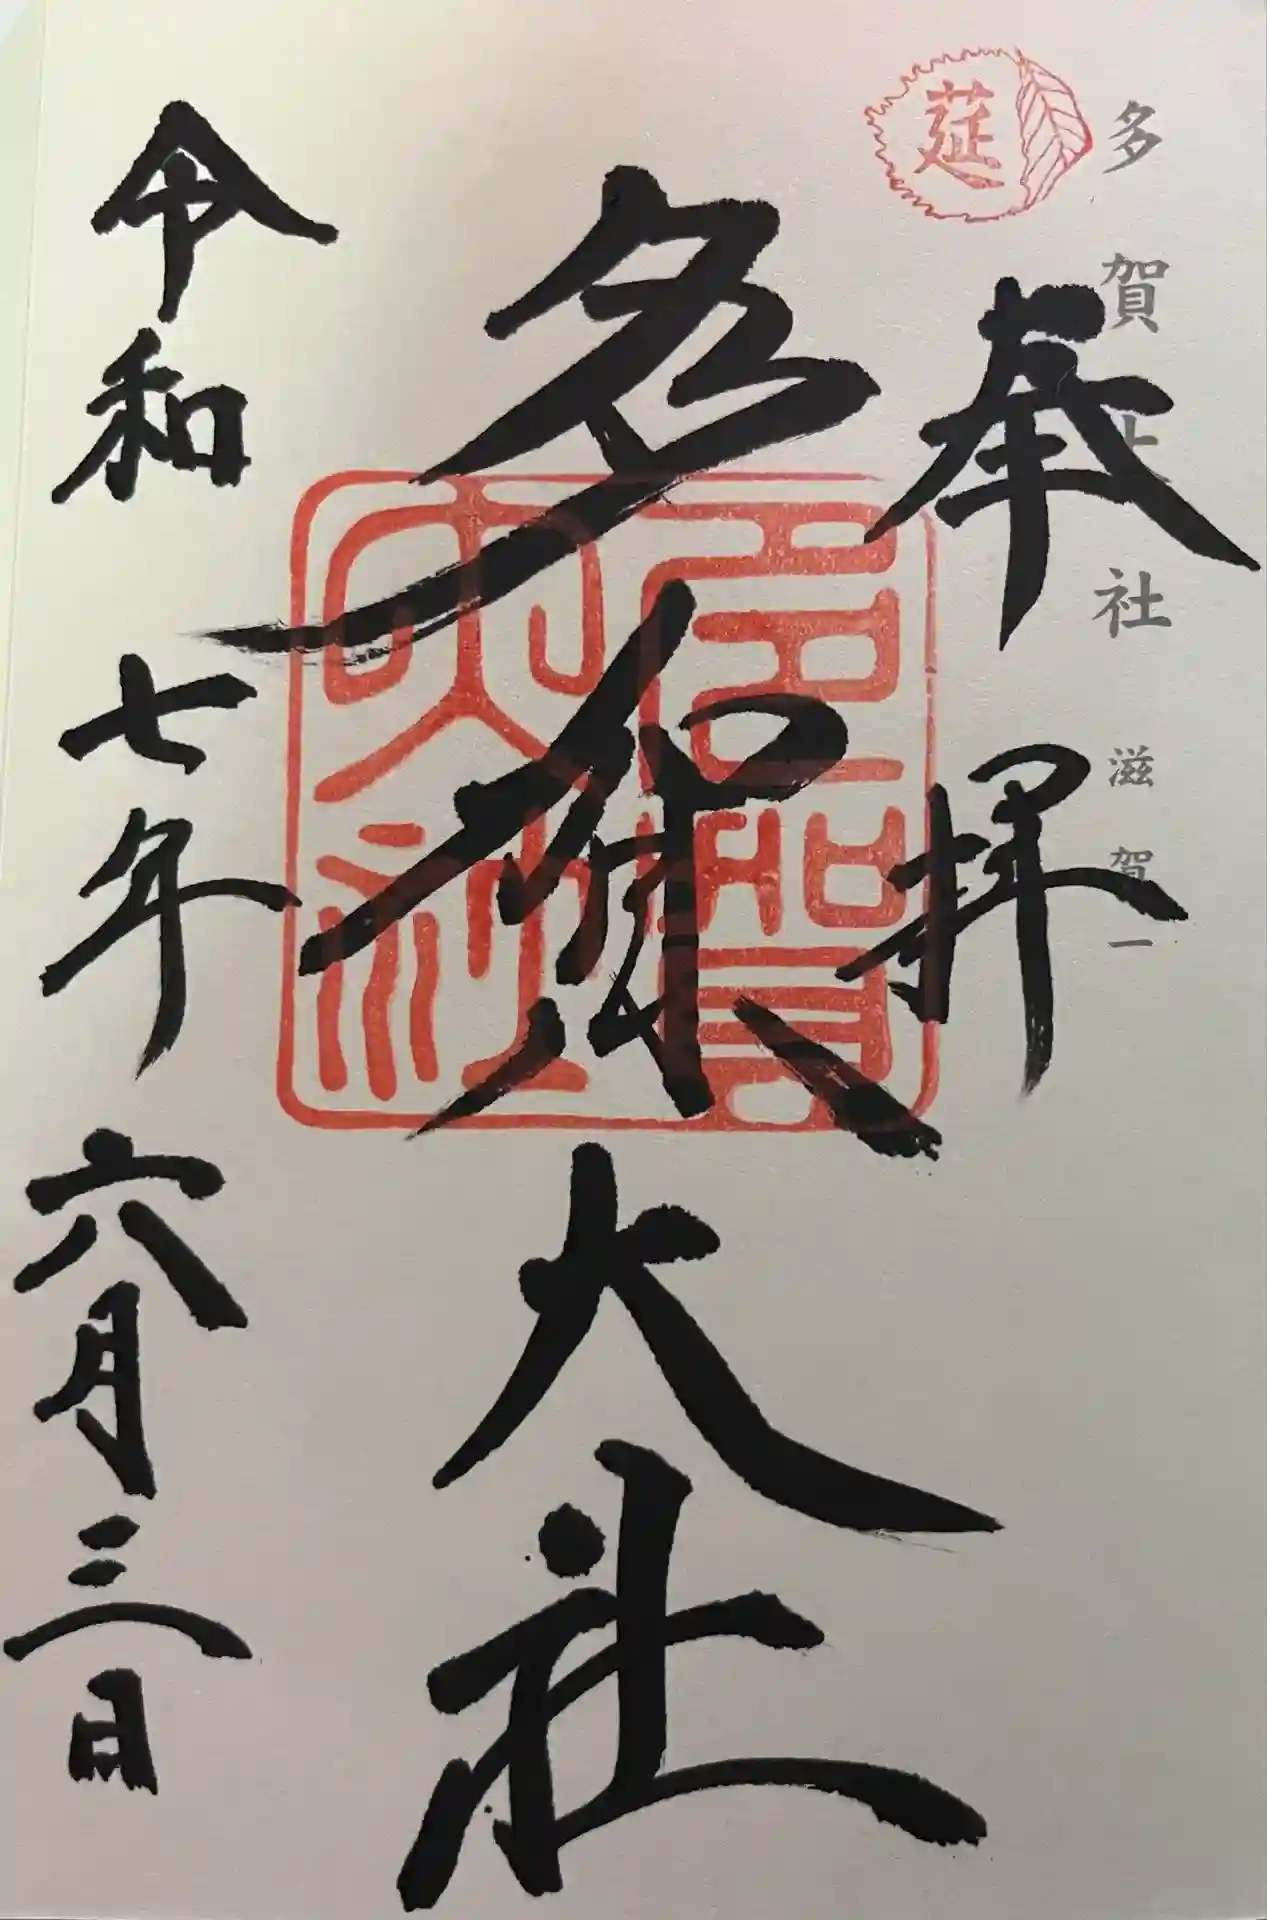 多賀大社 滋賀一
莚
奉拝
多賀大社
多賀大社
令和七年六月三日